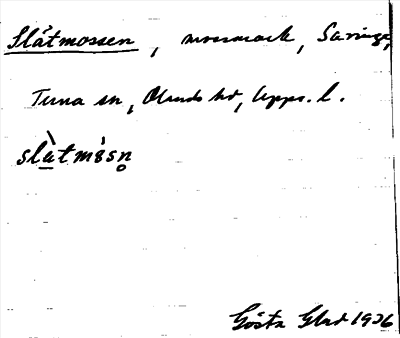 Slåtmossen, mossmark, Saringe,
Tuna sn, Olands hd, Upps. l.
slàtmòsn̥
Gösta Glad 1926